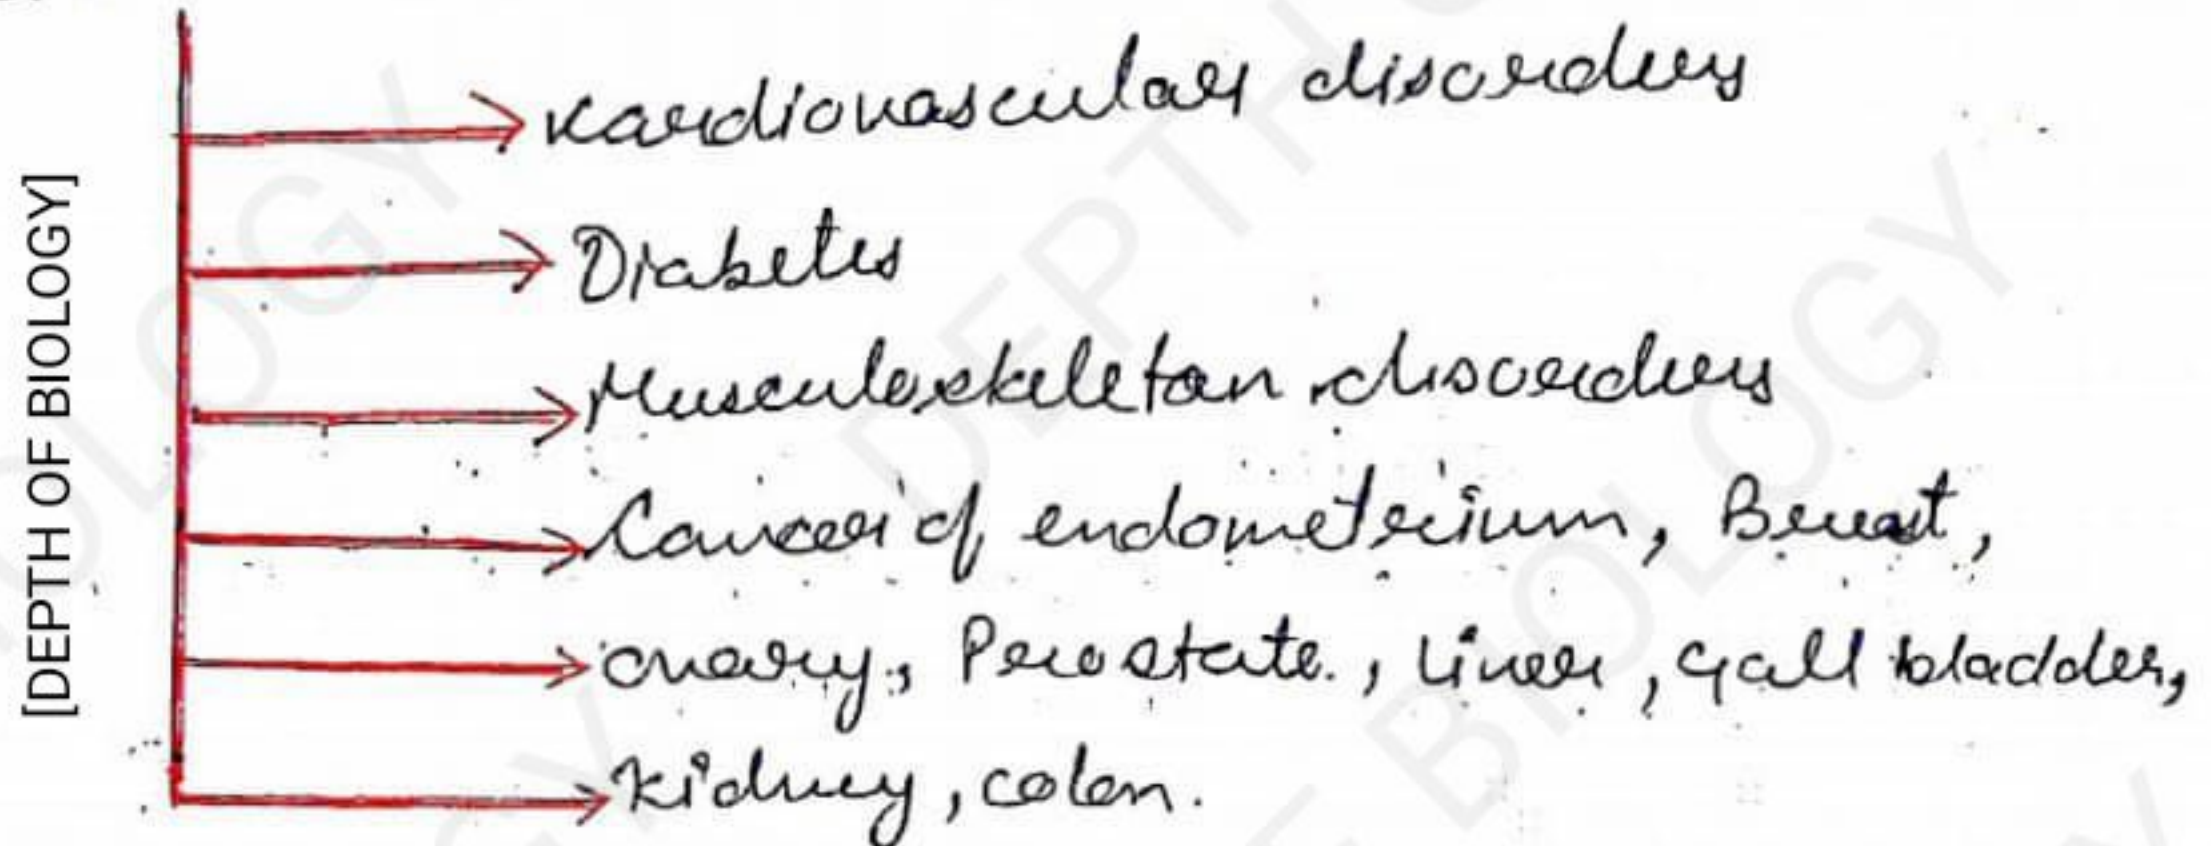 [DEPTH OF BIOLOGY]
Kardiovascular disorders
Diabetes
Musculoskeletan disorders
Cancer of endometrium, Breast,
ovary, Prostate., Liver, Gall bladder,
Kidney, colon.
DEPTH OF BIOLOGY